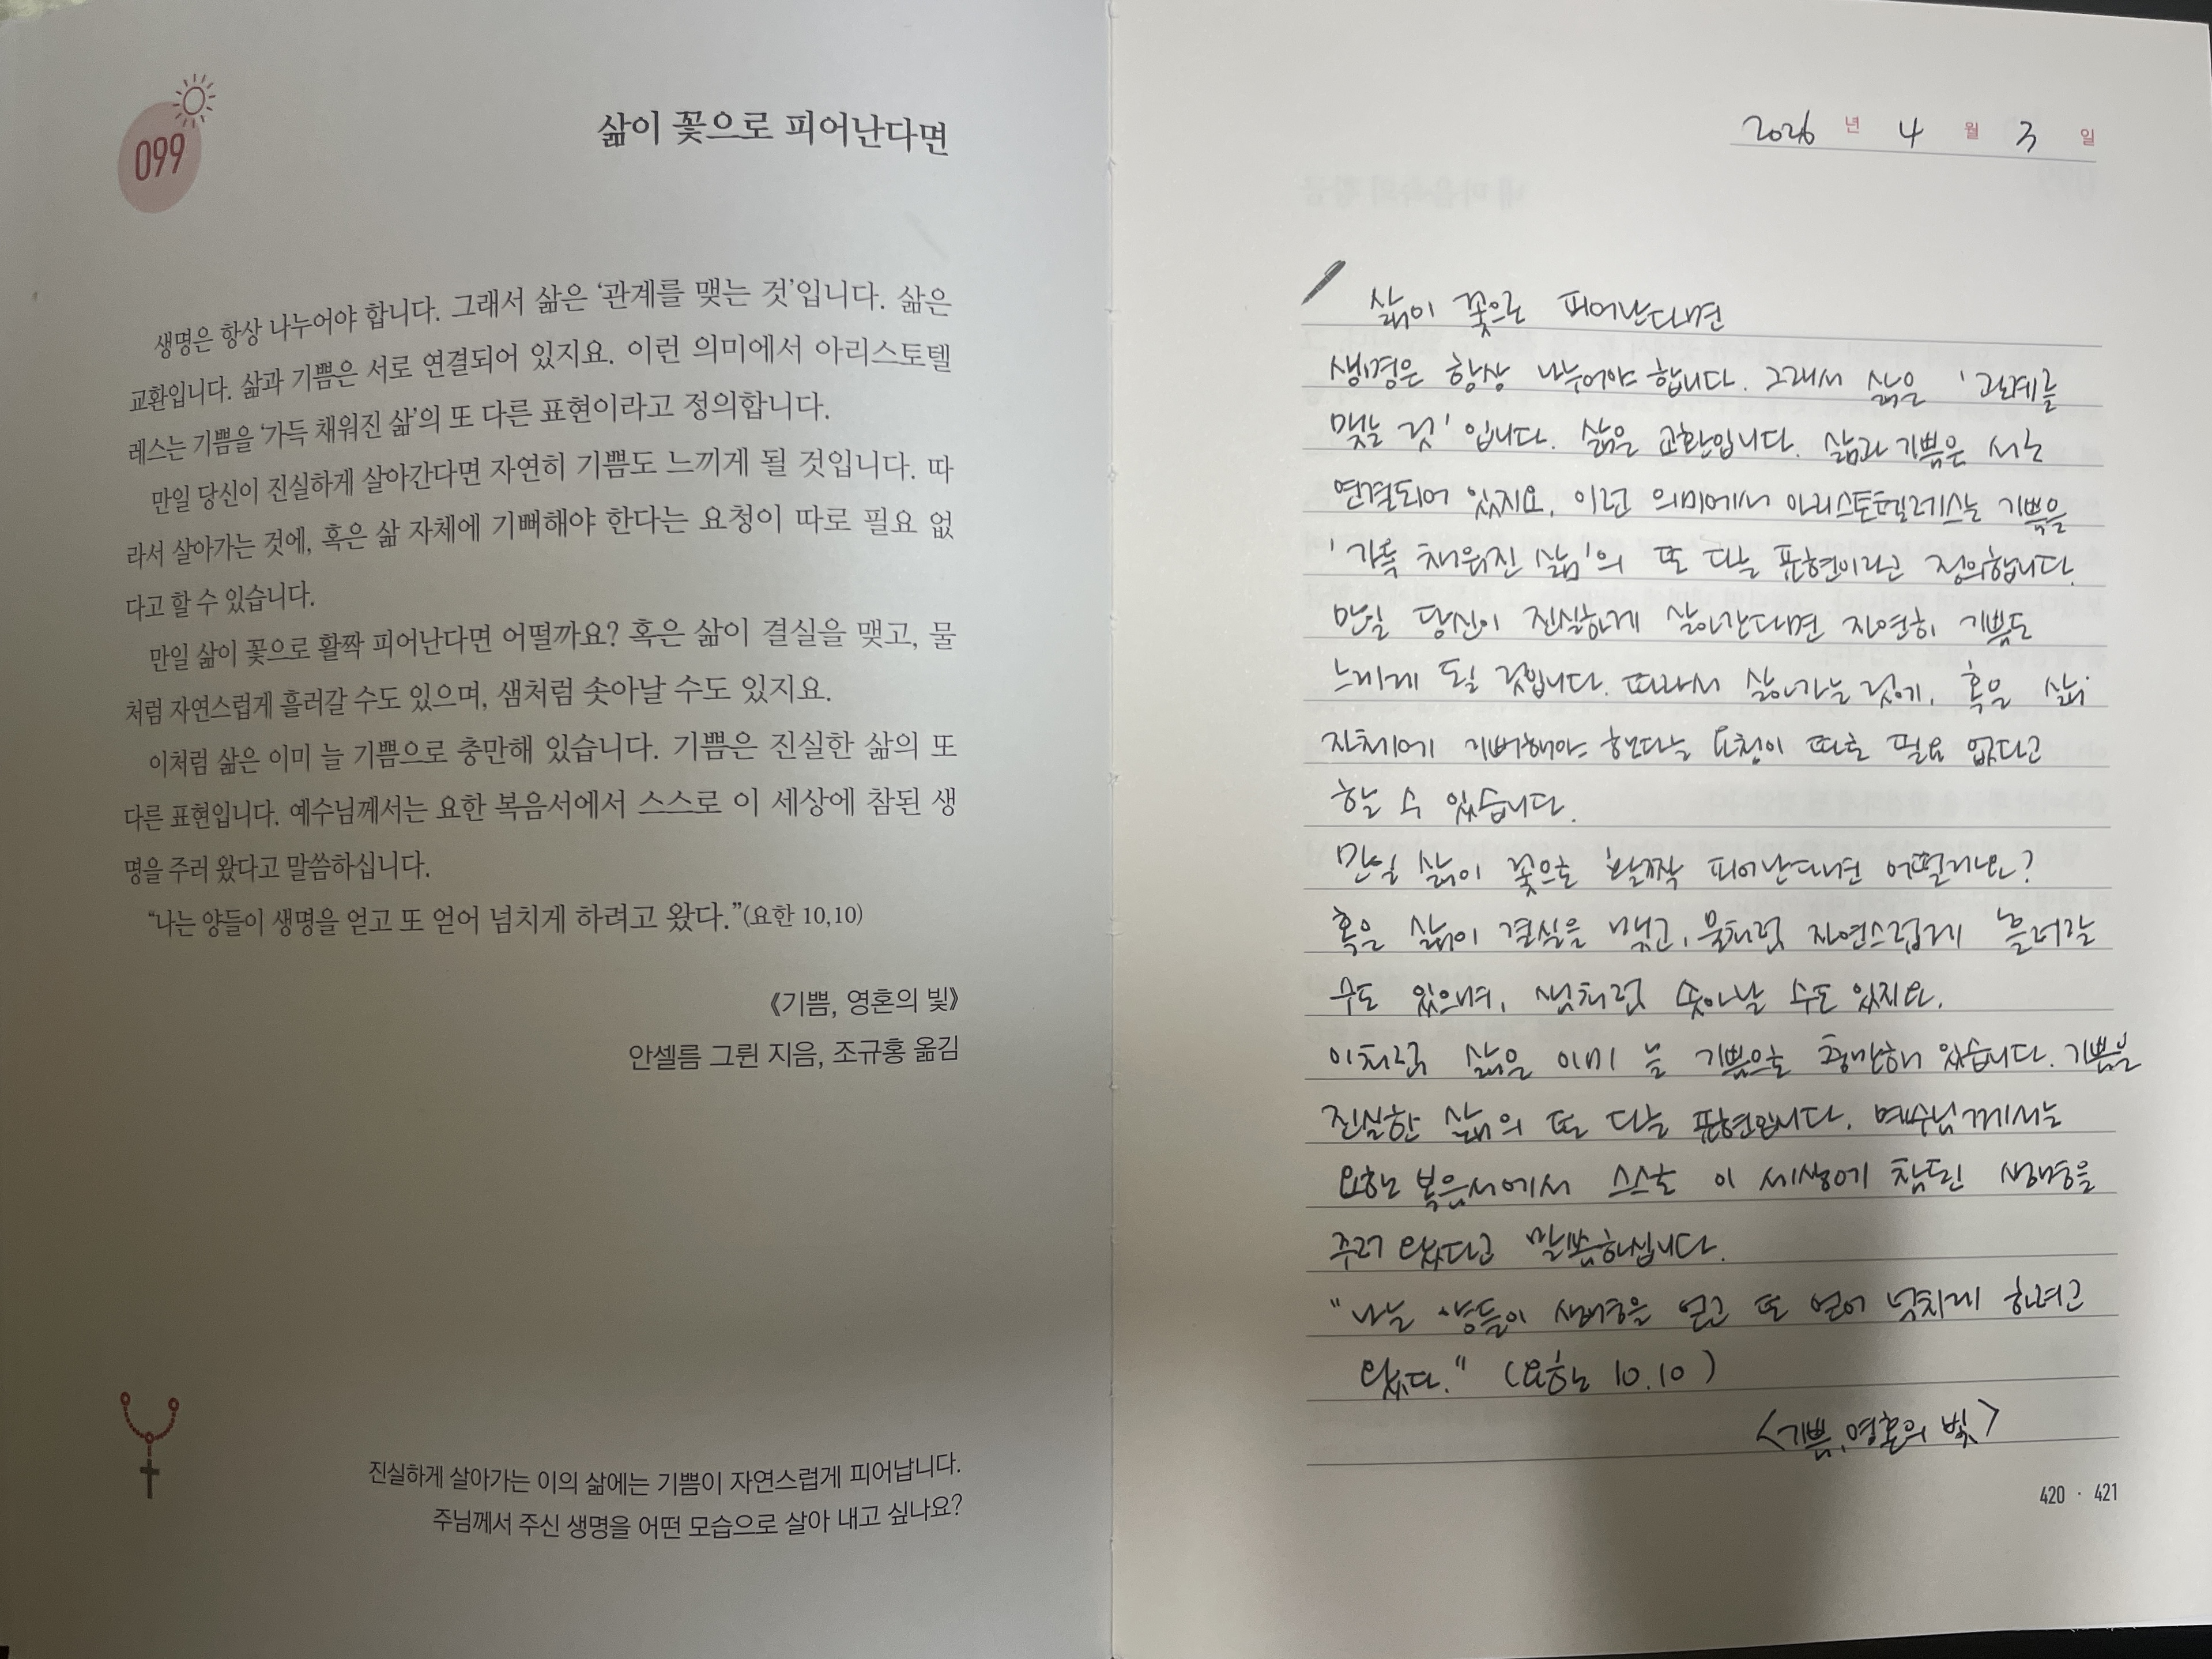 099
삶이 꽃으로 피어난다면
생명은 항상 나누어야 합니다. 그래서 삶은 ‘관계를 맺는 것’입니다. 삶은
교환입니다. 삶과 기쁨은 서로 연결되어 있지요. 이런 의미에서 아리스토텔
레스는 기쁨을 ‘가득 채워진 삶’의 또 다른 표현이라고 정의합니다.
만일 당신이 진실하게 살아간다면 자연히 기쁨도 느끼게 될 것입니다. 따
라서 살아가는 것에, 혹은 삶 자체에 기뻐해야 한다는 요청이 따로 필요 없
다고 할 수 있습니다.
만일 삶이 꽃으로 활짝 피어난다면 어떨까요? 혹은 삶이 결실을 맺고, 물
처럼 자연스럽게 흘러갈 수도 있으며, 샘처럼 솟아날 수도 있지요.
이처럼 삶은 이미 늘 기쁨으로 충만해 있습니다. 기쁨은 진실한 삶의 또
다른 표현입니다. 예수님께서는 요한 복음서에서 스스로 이 세상에 참된 생
명을 주러 왔다고 말씀하십니다.
“나는 양들이 생명을 얻고 또 얻어 넘치게 하려고 왔다.”(요한 10,10)
《기쁨, 영혼의 빛》
안셀름 그륀 지음, 조규홍 옮김
진실하게 살아가는 이의 삶에는 기쁨이 자연스럽게 피어납니다.
주님께서 주신 생명을 어떤 모습으로 살아 내고 싶나요?
2026 년 4 월 3 일
삶이 꽃으로 피어난다면
생명은 항상 나누어야 합니다. 그래서 삶은 '관계를
맺는 것' 입니다. 삶은 교환입니다. 삶과 기쁨은 서로
연결되어 있지요. 이런 의미에서 아리스토텔레스는 기쁨을
'가득 채워진 삶'의 또 다른 표현이라고 정의합니다.
만일 당신이 진실하게 살아간다면 자연히 기쁨도
느끼게 될 것입니다. 따라서 살아가는 것에, 혹은 삶
자체에 기뻐해야 한다는 요청이 따로 필요 없다고
할 수 있습니다.
만일 삶이 꽃으로 활짝 피어난다면 어떨까요?
혹은 삶이 결실을 맺고, 물처럼 자연스럽게 흘러갈
수도 있으며, 샘처럼 솟아날 수도 있지요.
이처럼 삶은 이미 늘 기쁨으로 충만해 있습니다. 기쁨은
진실한 삶의 또 다른 표현입니다. 예수님께서는
요한 복음서에서 스스로 이 세상에 참된 생명을
주러 왔다고 말씀하십니다.
"나는 양들이 생명을 얻고 또 얻어 넘치게 하려고
왔다." (요한 10.10)
<기쁨, 영혼의 빛>
420 · 421